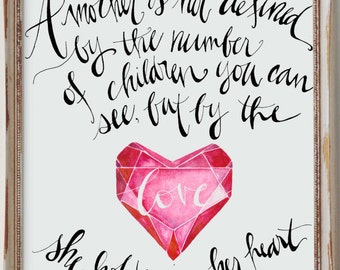 A mother is not defined
by the number
of children you can
see, but by the
love
she holds in her heart